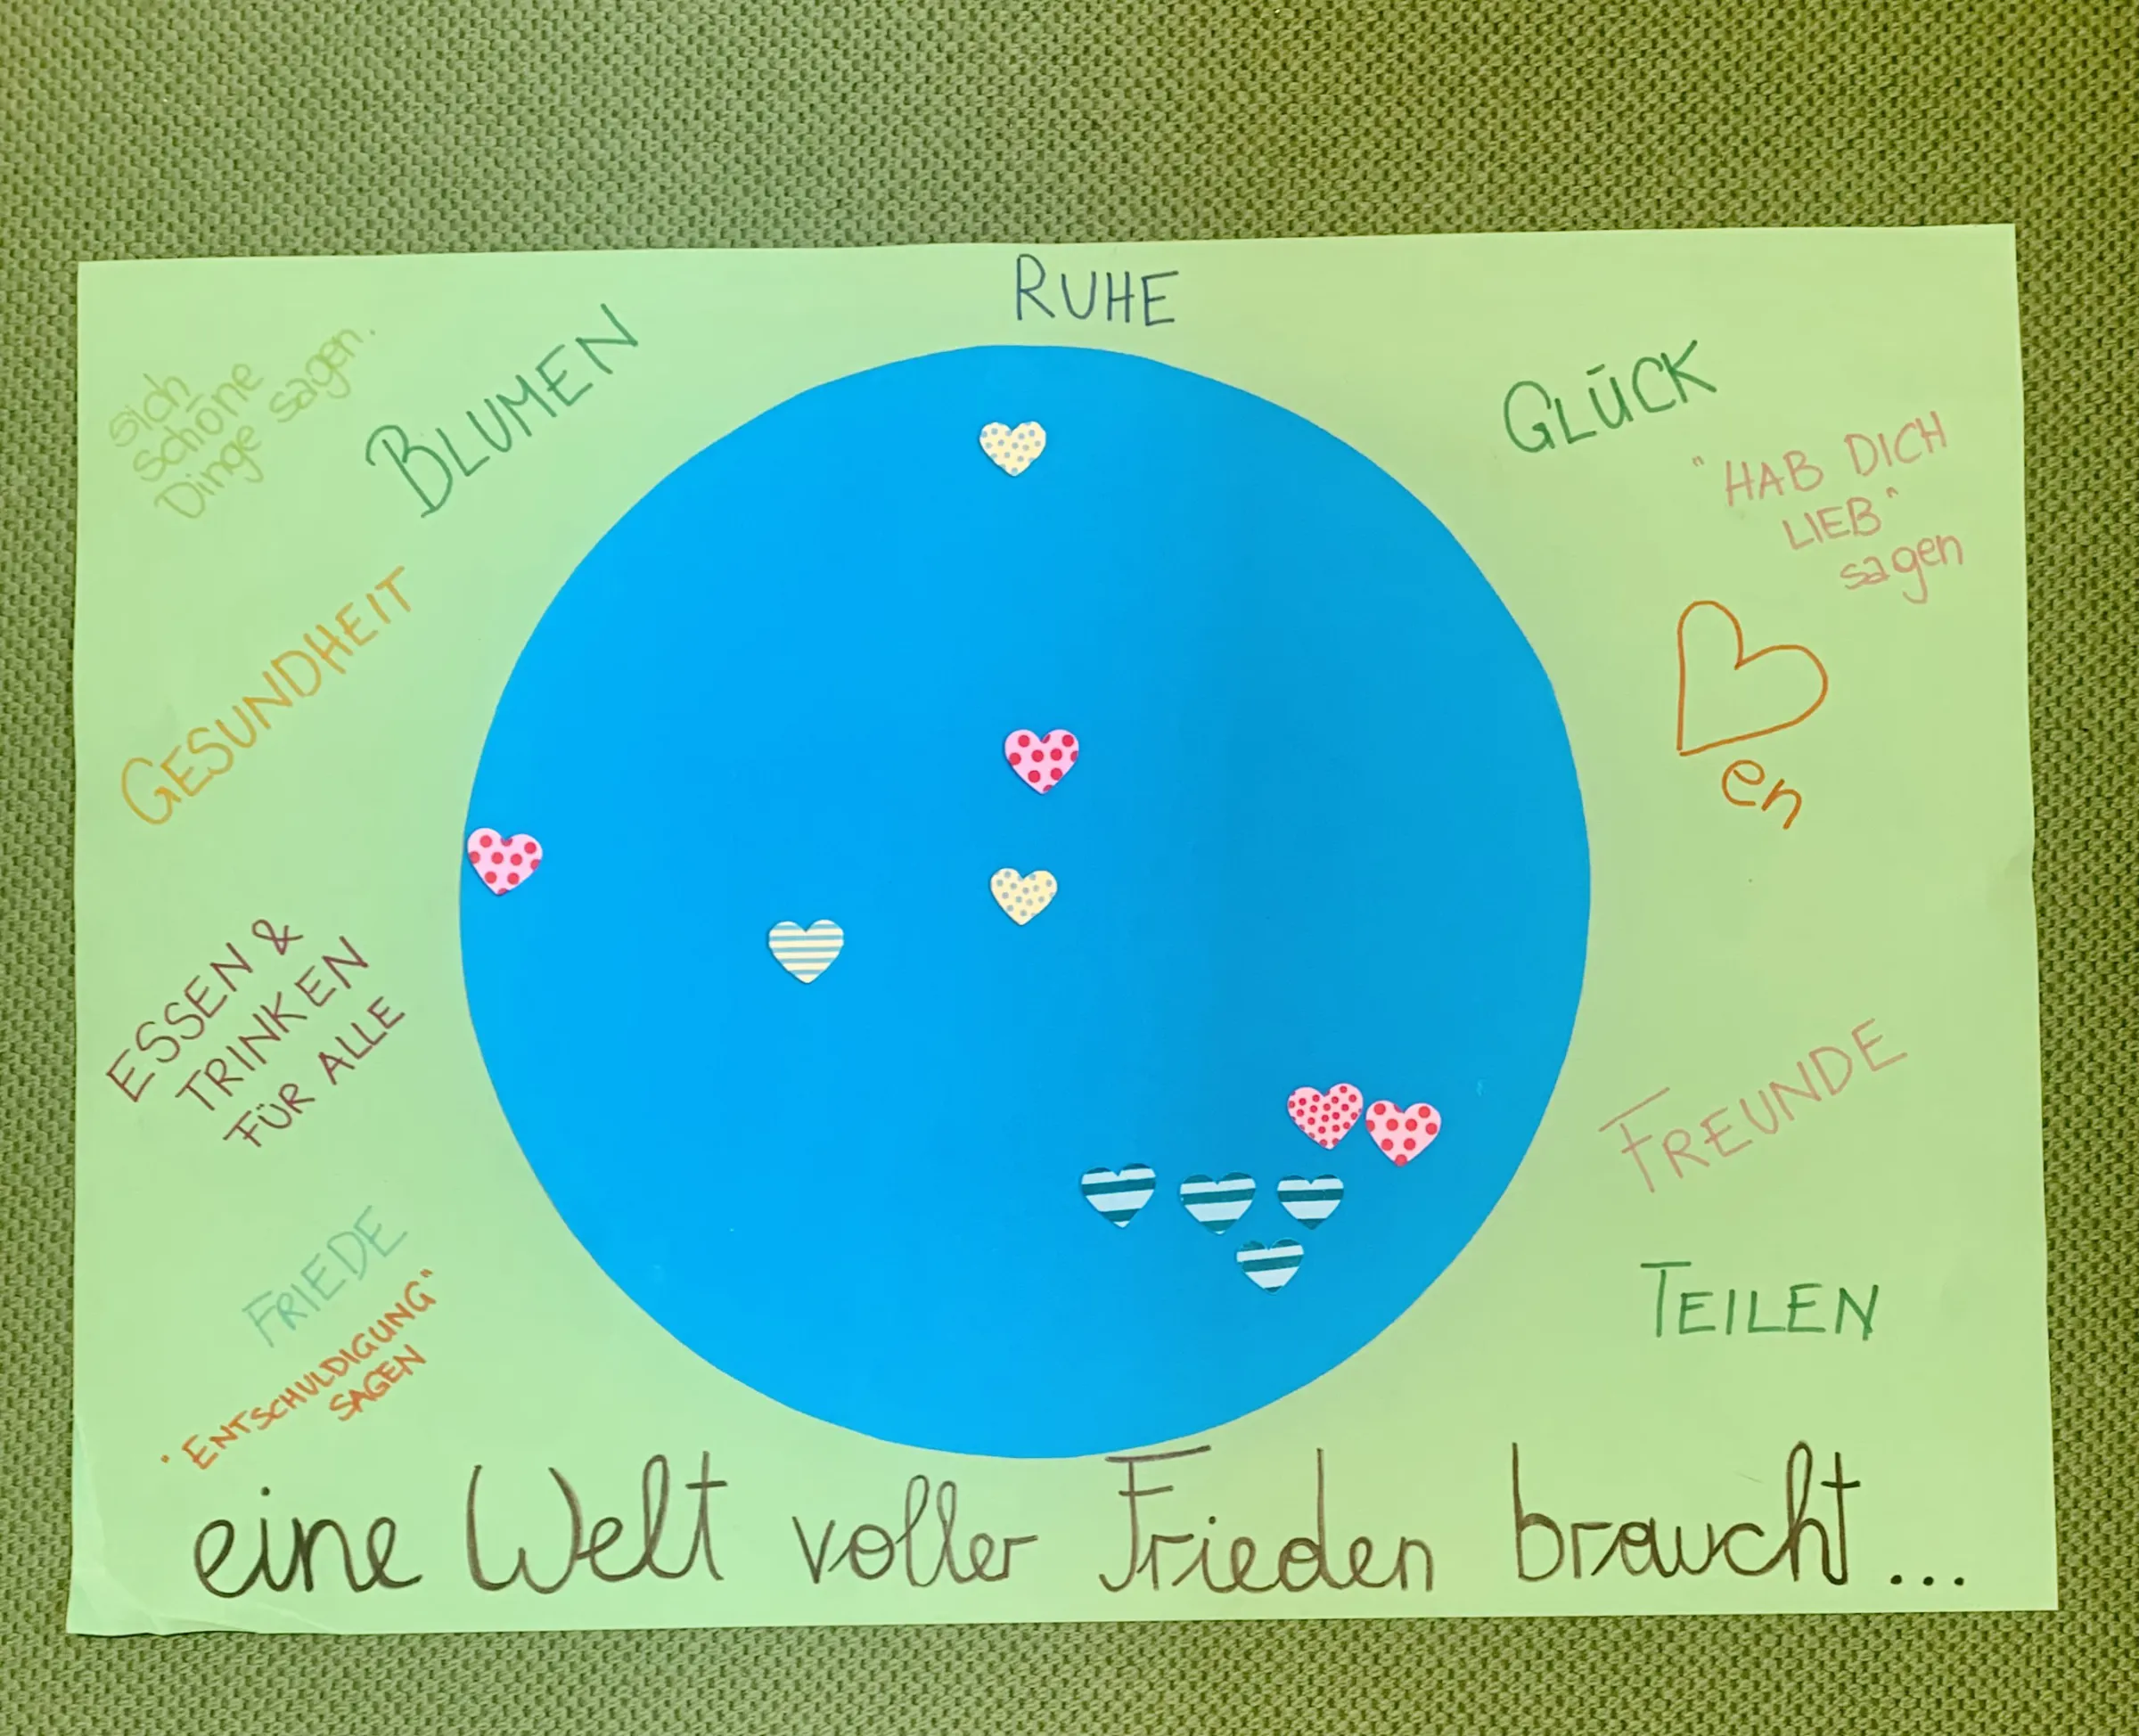 RUHE
sich
schöne
Dinge sagen.
BLUMEN
GLÜCK
"HAB DICH
LIEB"
sagen
GESUNDHEIT
en
ESSEN &
TRINKEN
FÜR ALLE
FREUNDE
FRIEDE
TEILEN
"ENTSCHULDIGUNG"
SAGEN
eine Welt voller Frieden braucht...